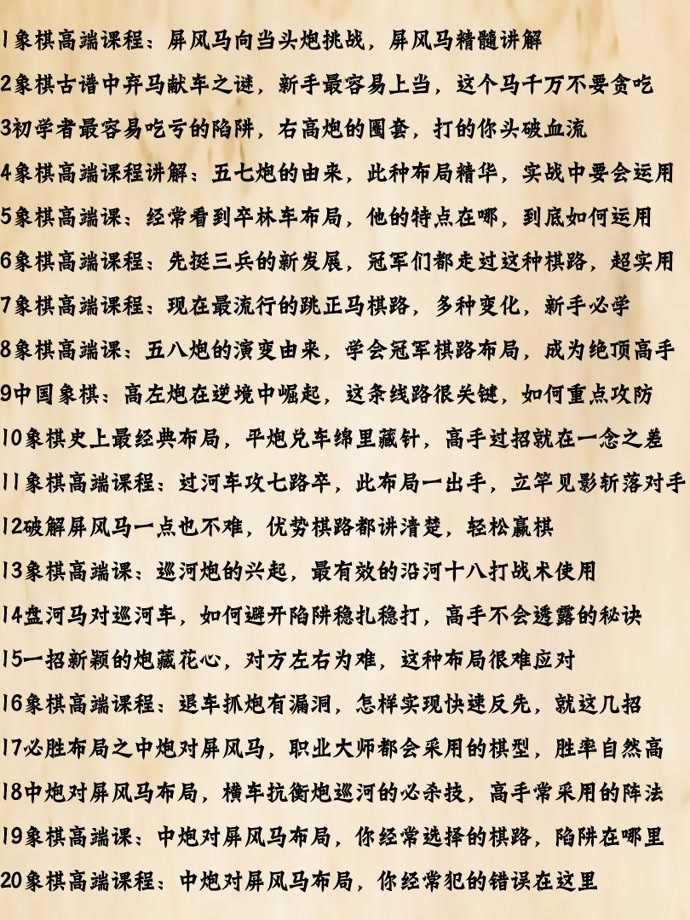 1象棋高端课程；屏风马向当头炮挑战，屏风马精髓讲解
2象棋古谱中弃马献车之谜，新手最容易上当，这个马千万不要贪吃
3初学者最容易吃亏的陷阱，右高炮的圈套，打的你头破血流
4象棋高端课程讲解；五七炮的由来，此种布局精华，实战中要会运用
5象棋高端课；经常看到卒林车布局，他的特点在哪，到底如何运用
6象棋高端课程；先挺三兵的新发展，冠军们都走过这种棋路，超实用
7象棋高端课程；现在最流行的跳正马棋路，多种变化，新手必学
8象棋高端课；五八炮的演变由来，学会冠军棋路布局，成为绝顶高手
9中国象棋；高左炮在逆境中崛起，这条线路很关键，如何重点攻防
10象棋史上最经典布局，平炮兑车绵里藏针，高手过招就在一念之差
11象棋高端课程；过河车攻七路卒，此布局一出手，立竿见影斩落对手
12破解屏风马一点也不难，优势棋路都讲清楚，轻松赢棋
13象棋高端课；巡河炮的兴起，最有效的沿河十八打战术使用
14盘河马对巡河车，如何避开陷阱稳扎稳打，高手不会透露的秘诀
15一招新颖的炮藏花心，对方左右为难，这种布局很难应对
16象棋高端课程；退车抓炮有漏洞，怎样实现快速反先，就这几招
17必胜布局之中炮对屏风马，职业大师都会采用的棋型，胜率自然高
18中炮对屏风马布局，横车抗衡炮巡河的必杀技，高手常采用的阵法
19象棋高端课；中炮对屏风马布局，你经常选择的棋路，陷阱在哪里
20象棋高端课程；中炮对屏风马布局，你经常犯的错误在这里